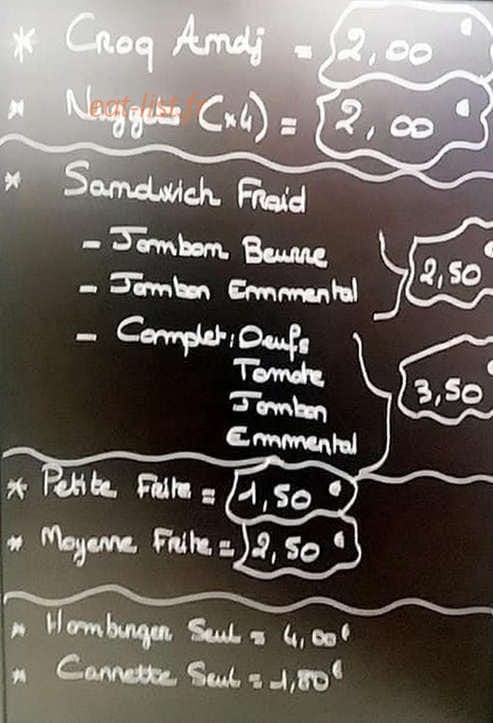 * Croq Amdj = 2,00 €
* Nuggets (x4) = 2,00 €
eat-list.fr
* Sandwich Froid
- Jambon Beurre
- Jambon Emmental
2,50 €
- Complet: Oeufs
Tomate
Jambon
Emmental
3,50 €
* Petite Frite = 1,50 €
* Moyenne Frite = 2,50 €
* Hamburger Seul = 4,00 €
* Cannette Seul = 1,80 €